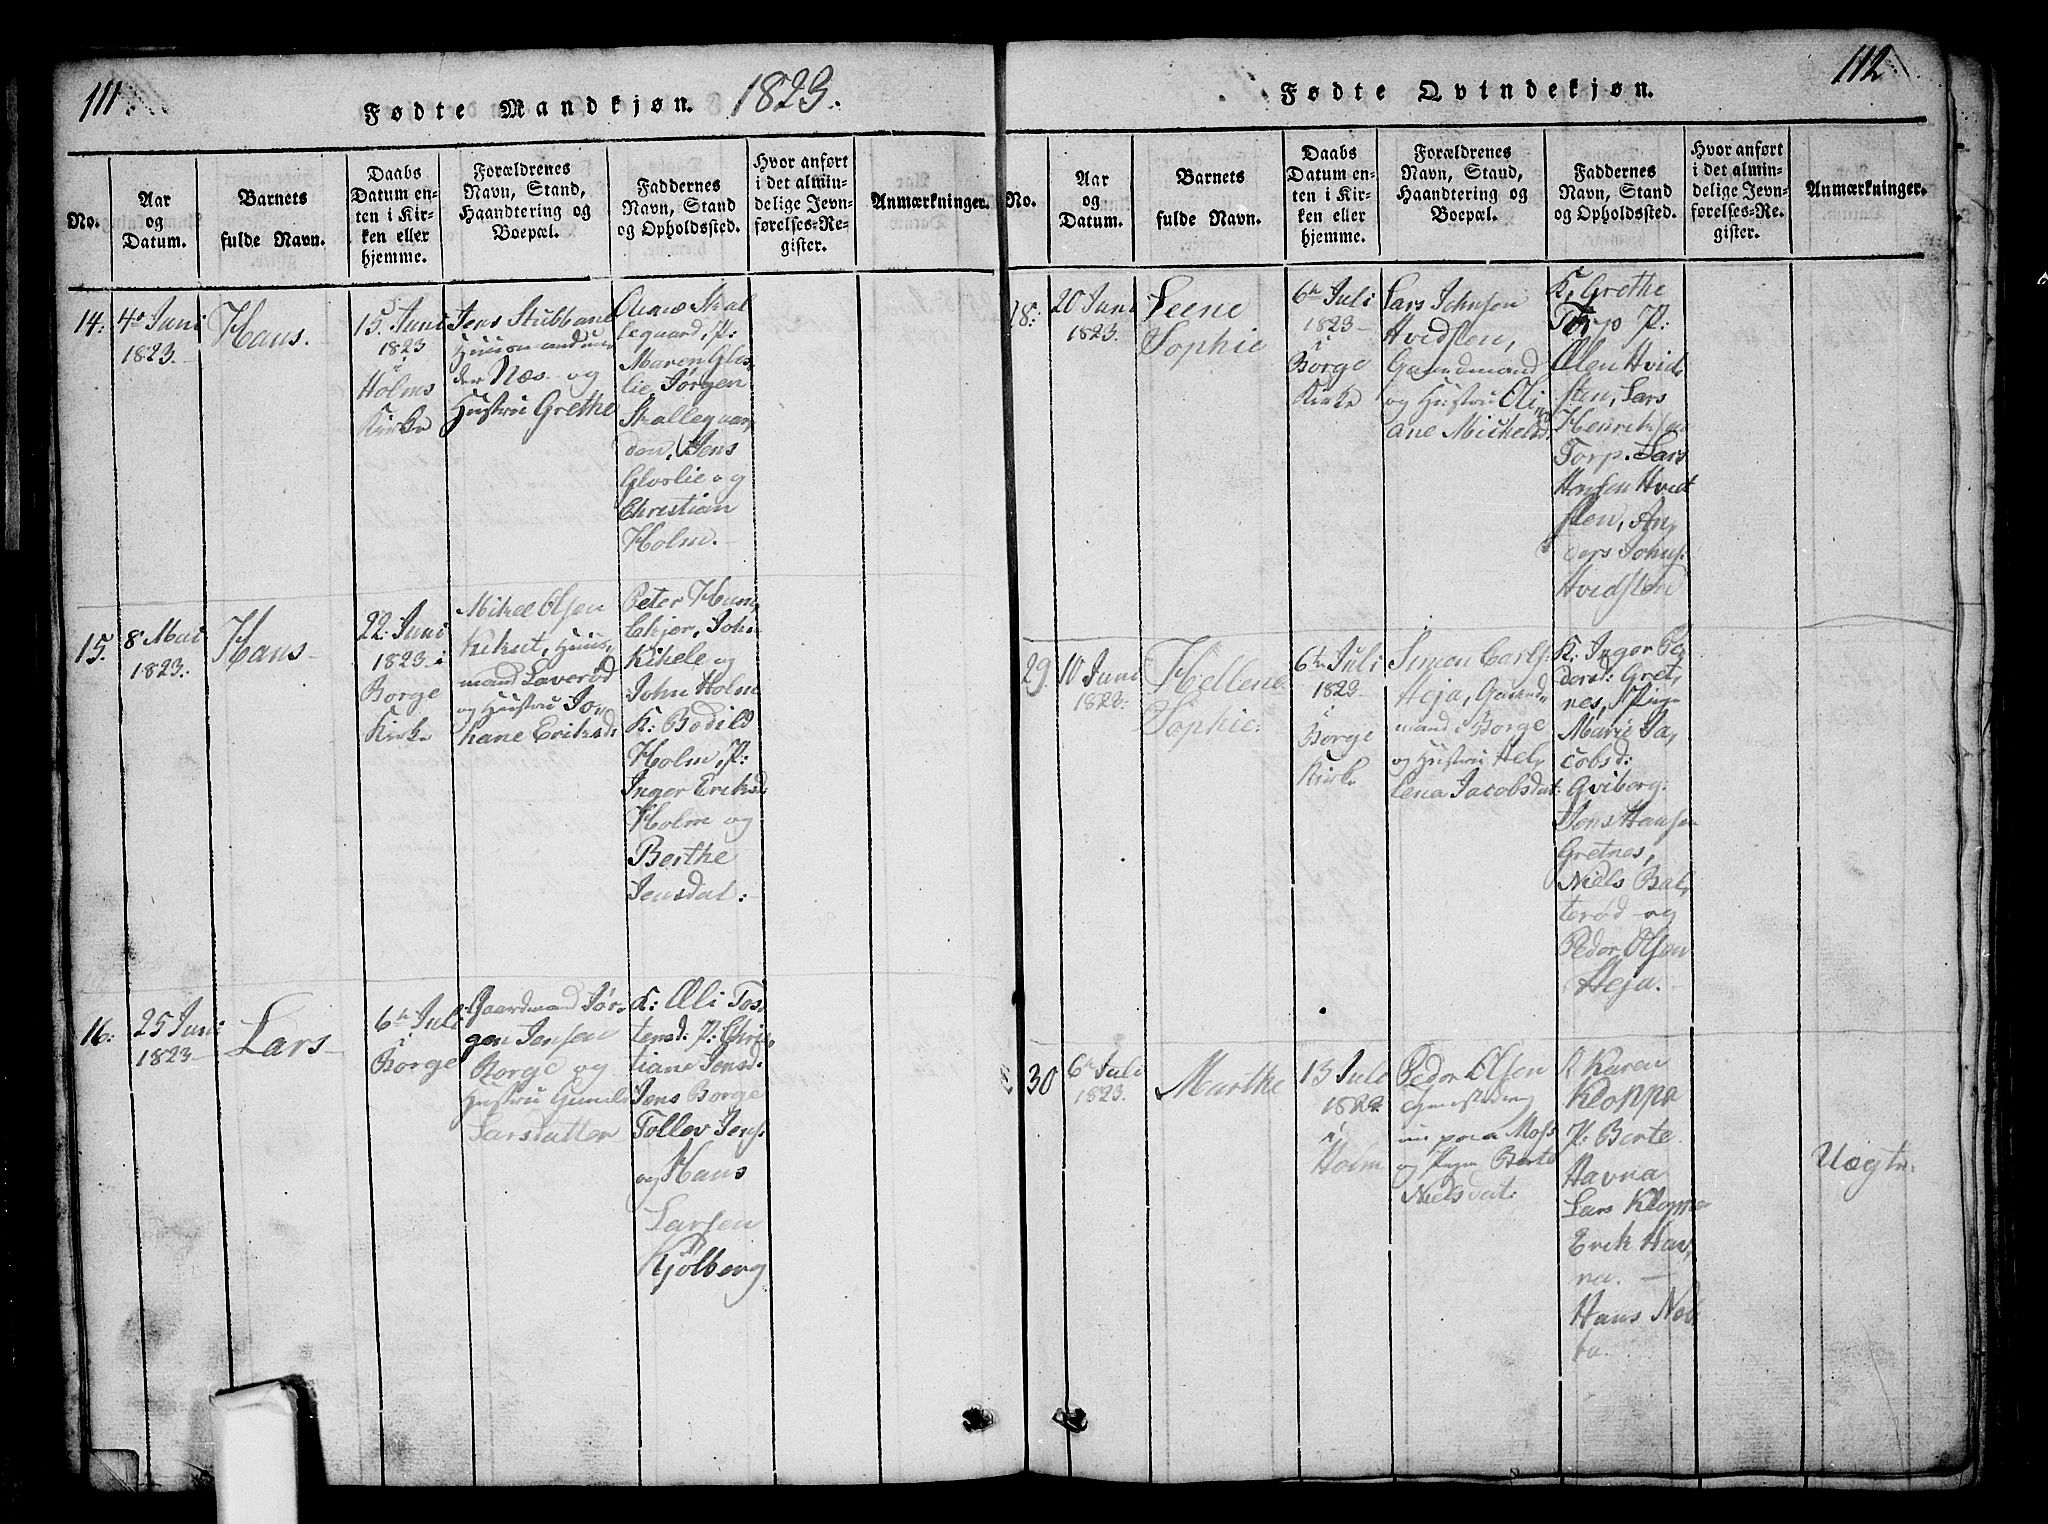 111.
Fødte Mandkjøn. 1823.
No.
Aar
og
Datum.
Barnets
fulde Navn.
Daabs
Datum en-
ten i Kir-
ken eller
hjemme.
Forældrenes
Navn, Stand,
Haandtering og
Boepæl.
Faddernes
Navn, Stand
og Opholdssted.
Hvor anført
i det almin-
delige Jevn-
førelses-Re-
gister.
Anmærkninger.
14:
4de Juni
1823.
Hans.
15. Juni
1823
i
Holms
Kirke
Jens Stubbane
Huusmand un-
der Næs og
Hustru Grethe
Skal
leguard, P:
Maren Glos
lie, Jørgen
Skalleguar
den, Jens
Gloslie og
Christian
Holm.
15.
8 Mai
1823.
Hans
22. Juni
1823 i
Borge
Kirke
Mikel Olsen
Kikut, Huus,
mand Laverød
og Hustru Jo,
hane Eriksd:
Peter Hun,
John
Kikele og
John Holm
K: Bodild
Holm, P:
Inger Eriksd
Holm og
Berthe
Jensdat:
16:
25 Juni
1823
Lars
6te Juli
i
Borge
Gaardmand Jør,
gen Jensen
Borge og
Hustru Gunild
Larsdatter
K: Oli Tos
tensd: P: Chris,
tiane Jensd:
Jens Borge
Tollev Jens:
og Hans
Larsen
Kjølberg
112
Fødte Qvindekjøn.
No.
Aar
og
Datum.
Barnets
fulde Navn.
Daabs
Datum en-
ten i Kir-
ken eller
hjemme.
Forældrenes
Navn, Stand,
Haandtering og
Boepæl.
Faddernes
Navn, Stand
og Opholdssted.
Hvor anført
i det almin-
delige Jevn-
førelses-Re-
gister.
Anmærkninger.
28:
20 Juni
1823.
Leene
Sophie
6te Juli
1823
i
Borge
Kirke
Lars Johnsen
Hvidsten,
Gaardmand
og Hustru Oli
ane Michelsd:
K, Grethe
Torp P:
Olen Hvid,
sten, Lars
Henriksen
Torp. Lars
Hansen Hvid
sten, An,
ders Johns:
Hvidsten
29.
10 Juni
1823.
Hellene
Sophie.
6te Juli
1823
i
Borge
Kirke
Simen Carls:
Heja, Gaard,
mand i Borge
og Hustru Hel,
lena Jacobsdat:
K: Inger Pe,
dersd: Gret,
nes, Pige
Marie Ja,
cobsd:
Gviborg:
Jens Hansen
Gretnes,
Niels Bat,
terød og
Peder Olsen
Heja.
30
6te Juli
1823.
Marthe
13 Juli
1823
i
Holm
Peder Olsen
paa Moss
og Pigen Berte
Nielsdat:
K Karen
Kloppe
P: Berte
Havna
Lars Kloppe
Erik Hav,
na.
Hans Neb
ba.
Uægte.